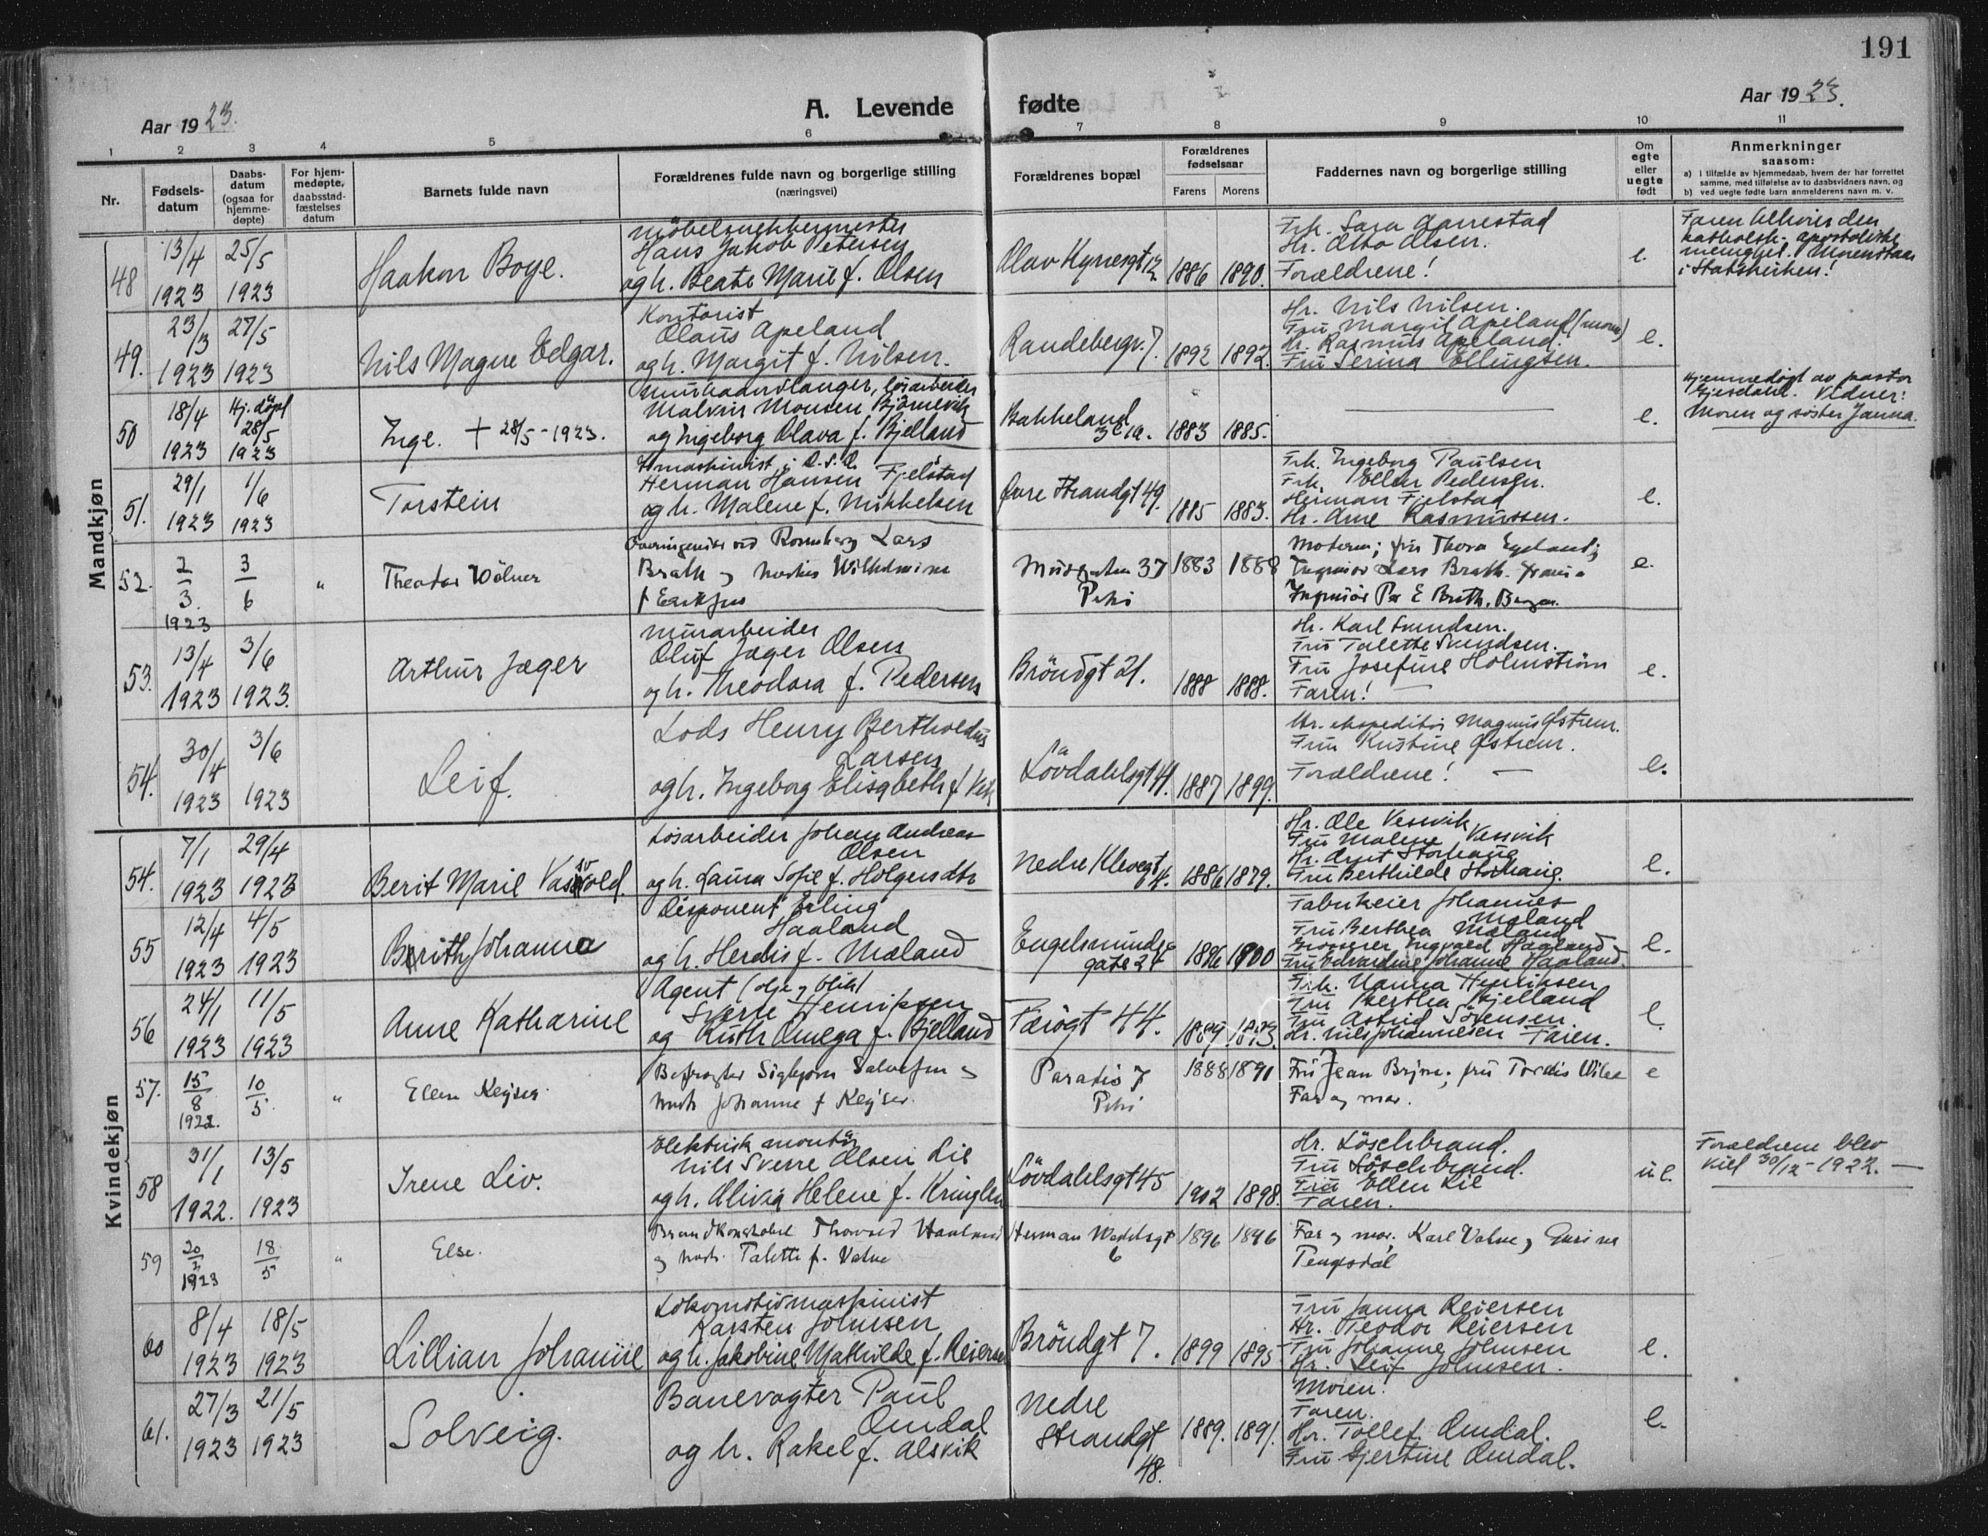 191
Aar 1923.
A. Levende fødte
Aar 1923.
1 2 3 4 5 6 7 8 9 10 11
Nr.
Fødsels-
datum
Daabs-
datum
(ogsaa for
hjemme-
døpte)
For hjem-
medøpte,
daabsstad-
fæstelses
datum
Barnets fulde navn
Forældrenes fulde navn og borgerlige stilling
(næringsvei)
Forældrenes bopæl
Forældrenes
fødselsaar
Farens Morens
Faddernes navn og borgerlige stilling
Om
egte
eller
uegte
født
Anmerkninger
saasom:
a) i tilfælde av hjemmedaab, hvem der har forrettet
samme, med tilføielse av to daabsvidners navn, og
b) ved uegte født barn anmelderens navn m. v.
Mandkjøn
48
13/4
1923
25/5
1923
Haakon Boye.
Hans Jakob Petersen
og h. Beate Marie f. Olsen
1886 1890.
Frk. Sara Aarrestad
Hr. Otto Olsen.
Forældrene!
e.
i Statskirken!
49.
23/3
1923
27/5
1923
Nils Magne Edgar.
Kontorist
Olaus Apeland
og h. Margit f. Nilsen.
Randebergv. 7.
1892 1892.
Hr. Nils Nilsen.
Fru Margit Apeland (moren)
Hr. Rasmus Apeland.
Fru Serina Ellingsen.
e.
50
18/4
1923
Hj. døpt
28/5
1923
Inge. + 28/5 - 1923.
Malvin Monsen Bjørnevik
og Ingeborg Olava f. Bjelland
Bakkeland
1883 1885.
e.
Hjemmedøpt av pastor
Gjesdahl. Vidner:
Moren og søster Janna.
51.
29/1
1923
1/6
1923
Torstein
Herman Hansen Fjelstad
og h. Malene f. Mikkelsen
Øvre Strandgt 49.
1885 1883.
Frk. Ingeborg Paulsen
Frk. Ellen Pedersen.
Herman Fjelstad
Hr. Arne Rasmussen.
e.
52.
2/3.
1923
3/6
"
Theodor Wölner
Lars
Brath
37
Petri
1883 1888
Moderen; fru Thora Egeland;
Ingeniør Lars Brath.
e.
53.
13/4
1923
3/6
1923.
Arthur Jæger
Murarbeider
Oluf Jæger Olsen
og h. Theodora f. Pedersen
Brøndgt 21.
1888 1888.
Hr. Karl Svendsen.
Fru Talette Svendsen.
Fru Josefine Holmstrøm
Faren!
e.
54.
30/4
1923
3/6
1923
Leif.
Lods Henry Bertholdus
Larsen
og h. Ingeborg Elisabeth f. Vik
Lövdahlsgt 41.
1887 1899.
Hr. ekspeditør Magnus Østrem.
Fru Kristine Østrem.
Forældrene!
e.
Kvindekjøn
54.
7/1
1923
29/4
1923
Berit Marie
Løsarbeider Johan Andreas
Olsen
og h. Laura Sofie f. Holgersdtr
Nedre Klevegt
1886 1879.
Hr. Ole Vesvik
Fru Malene Vesvik
Hr. Arnt Storhaug
Fru Berthilde Storhaug.
e.
55
12/4
1923
4/5
1923
Johanna
Disponent Erling
Haaland
og h. Herdis f. Mæland
Engelsminde
gate 24
1896 1900
Fabrikeier Johannes
Mæland
Fru Berthea Mæland
Grosserer Ingvald Haaland
Johanne Haaland.
e.
56
24/1
1923
11/5
1923
Anne Katharine
Agent
Sverre Henriksen
og Ruth Omega f. Bjelland
Færøgt 44.
1889 1893.
Frk. Nanna Henriksen
Fru Berthea Bjelland
Fru Astrid Sörensen
Hr. Nils Johannesen Faren.
e.
57.
15/8
1922.
10/5.
"
Ellen Keyser
Sigbjørn
Johanne f Keyser.
Paradis 7
Petri
1888 1890
Far og mor.
e
58
31/1
1922.
13/5
1923
Irene Liv.
Elektrisk montör
Nils Sverre Olsen Lie
og h. Olivia Helene f. Kringlen
Lövdahlsgt 45
1902 1898.
Hr. Löschbrand.
Fru Löschbrand.
Fru Ellen Lie
Faren.
u e.
Forældrene blev
viet 30/12 - 1922.
59
1923
18/5
"
Else.
Brandkonstabel Thorvald Haaland
Talette f.
6
1896 1896
Far og mor. Karl
60
8/4
1923
18/5
1923
Lillian Johanne
Lokomotivmaskinist
Karsten Johnsen
og h. Jakobine Mathilde f. Reiersen
Brøndgt 7.
1899 1895
Fru Janna Reiersen
Hr. Teodor Reiersen
Fru Johanne Johnsen
Hr. Leif Johnsen.
e.
61.
27/3
1923
21/5
1923
Solveig.
Banevogter Paul
Omdal
og h. Rakel f. Alsvik
Nedre
Strandgt
48.
1889. 1891.
Moren!
Faren.
Hr. Tollef Omdal.
Fru Gjertine Omdal.
e.